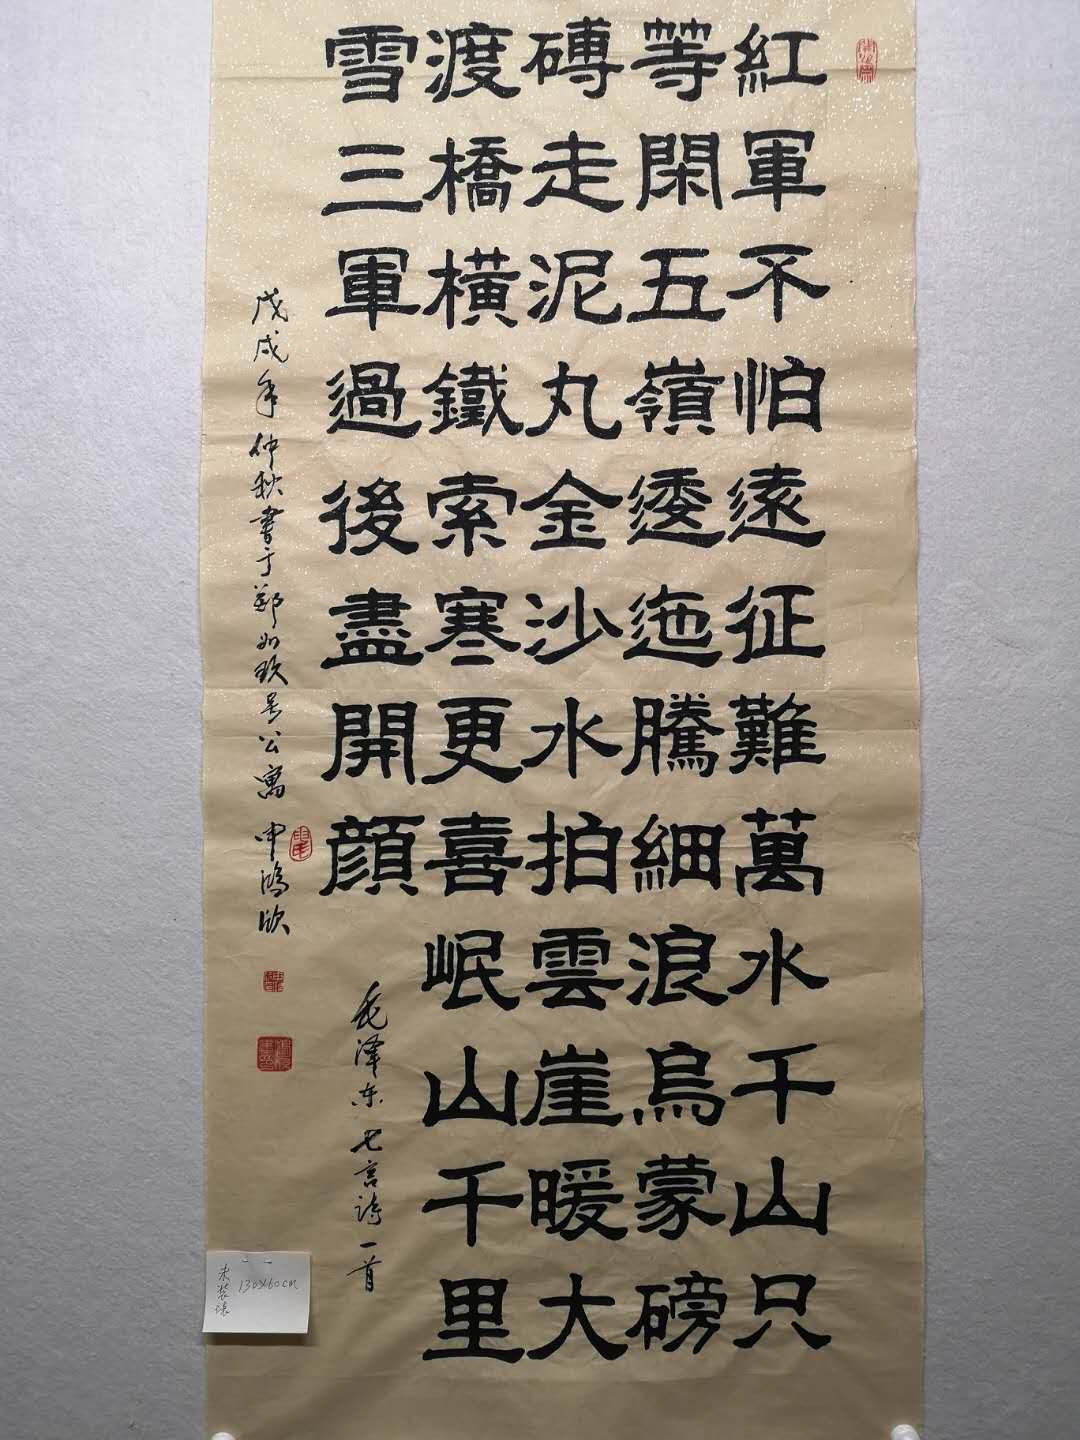 紅軍不怕遠征難萬水千山只
等閑五嶺逶迤騰細浪烏蒙磅
磗走泥丸金沙水拍雲崖暖大
渡橋橫鐵索寒更喜岷山千里
雪三軍過後盡開顔
毛泽东七言詩一首
戊戌年仲秋書于鄭州玖号公寓 申鴻欣
未装裱
130X60cm